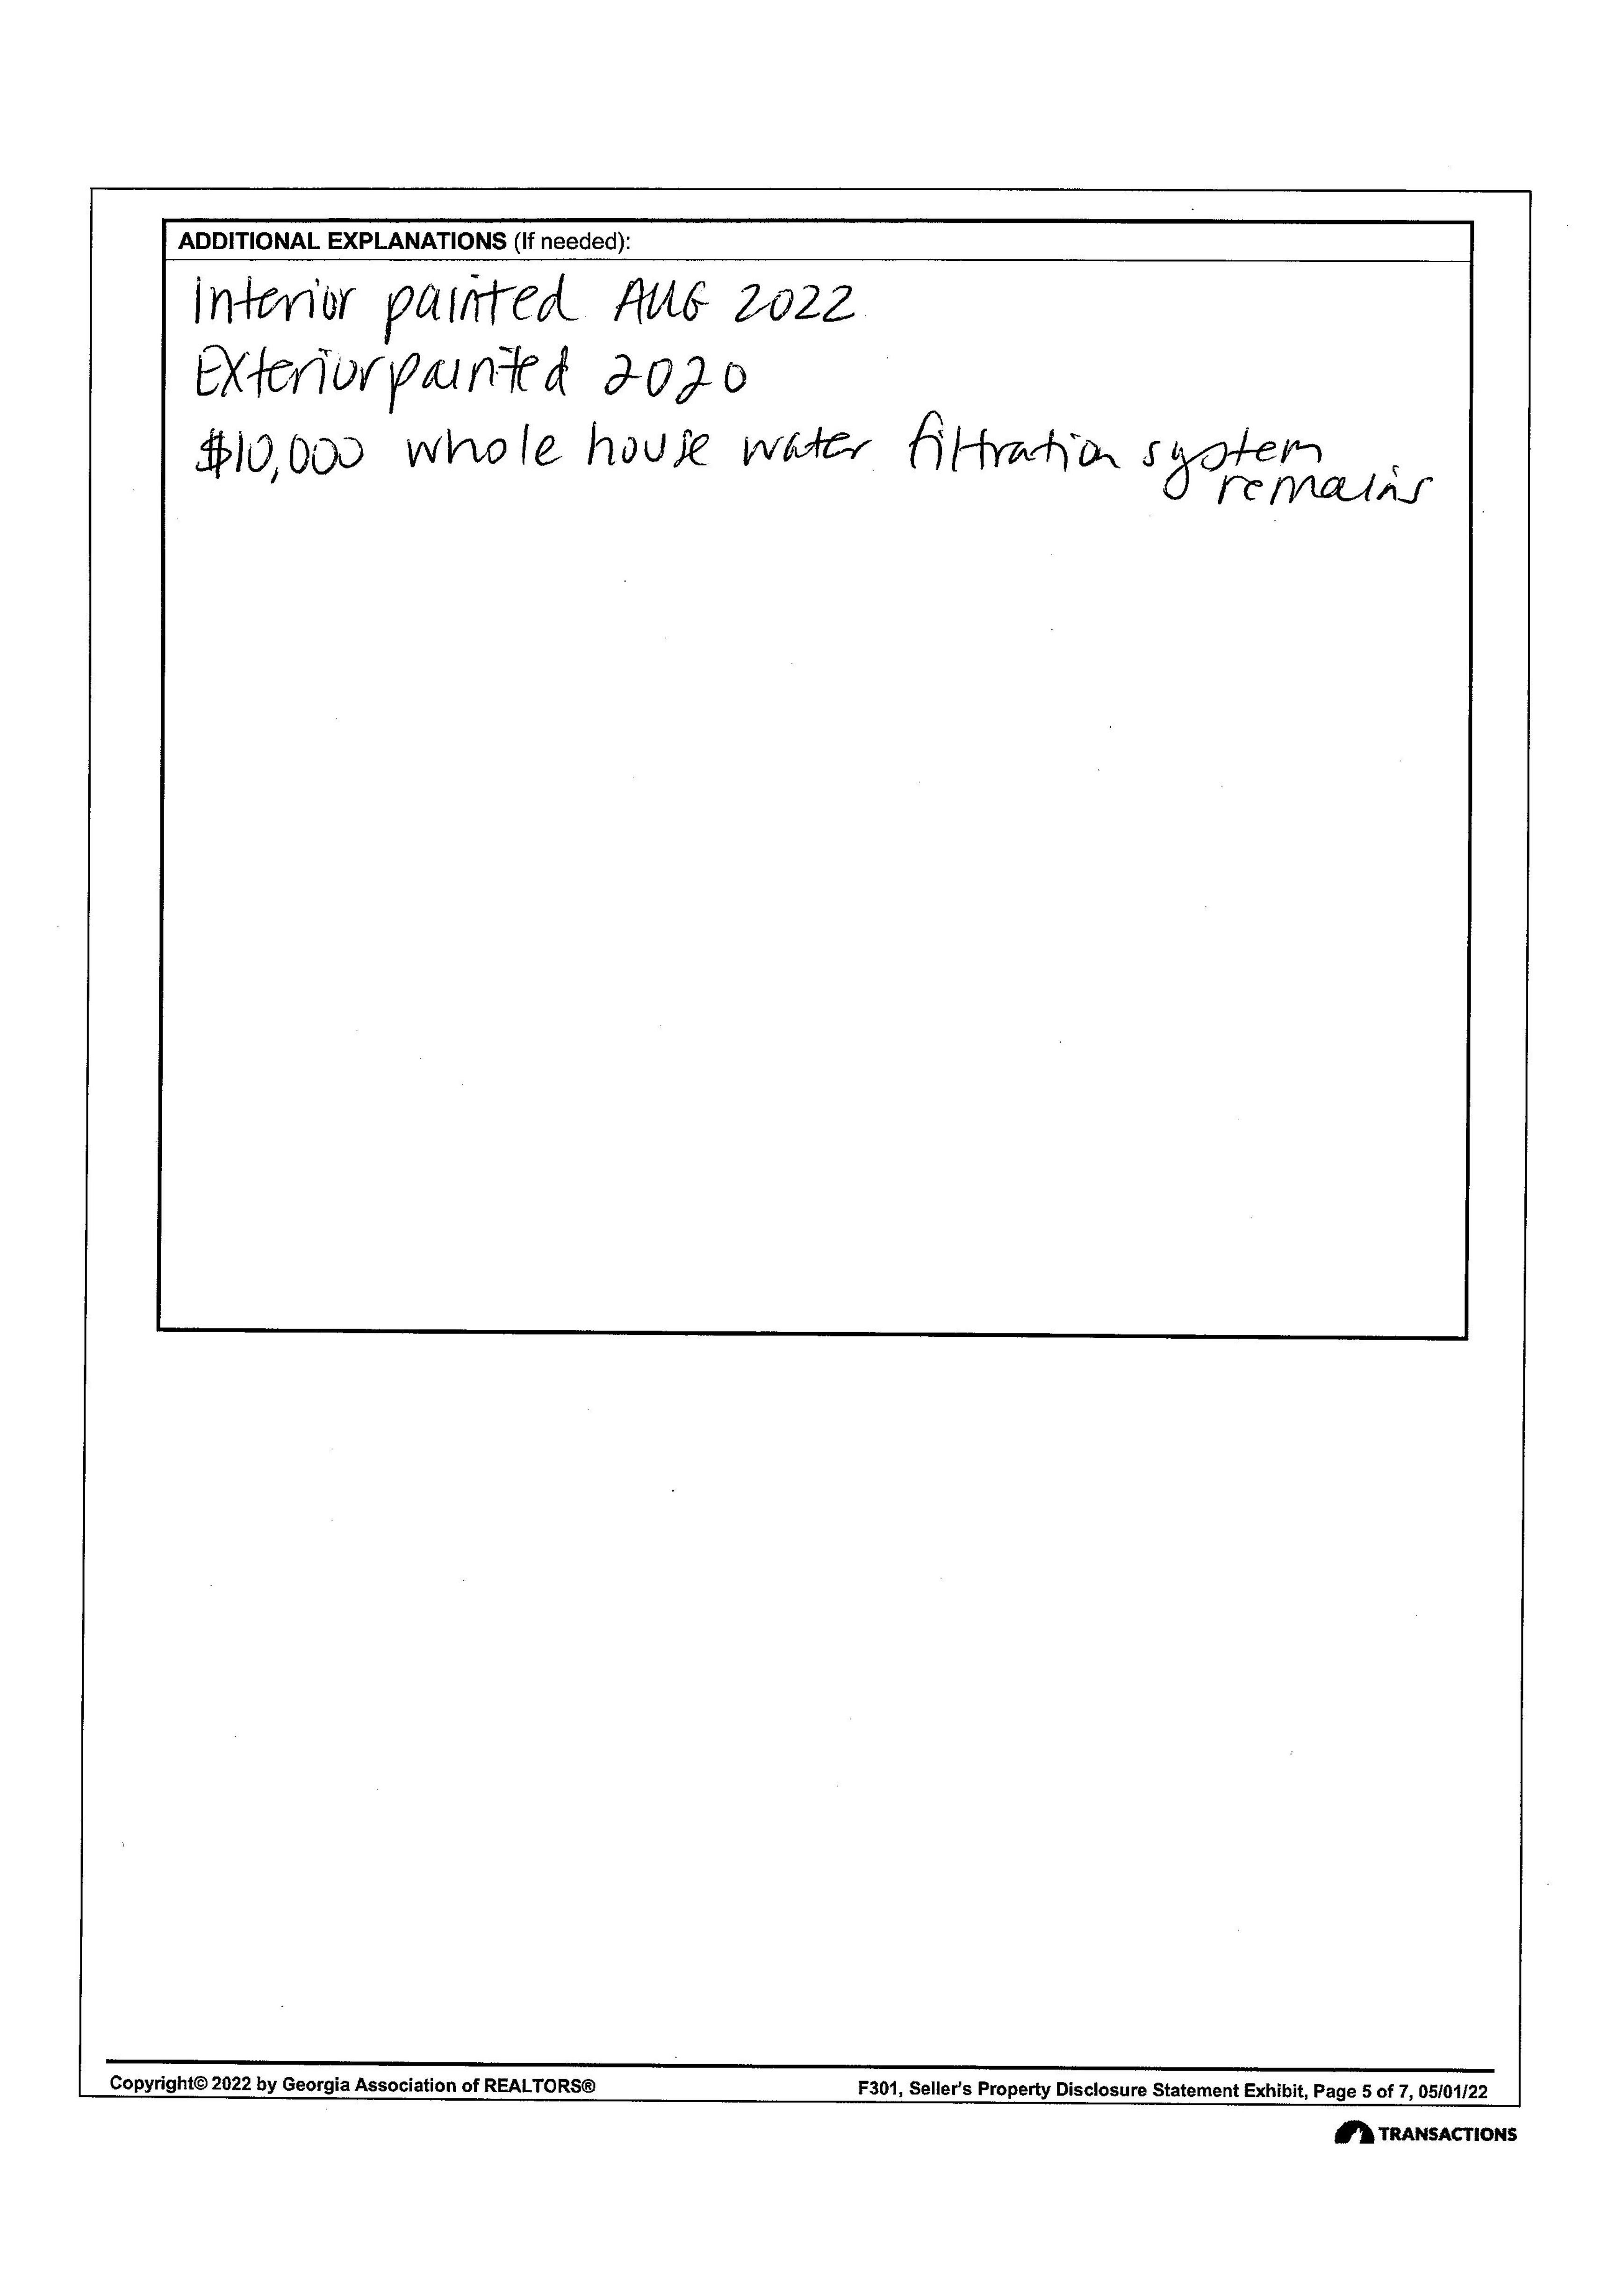 ADDITIONAL EXPLANATIONS (If needed):
Interior painted AUG 2022
Exterior painted 2020
$10,000 whole house water filtration system
remains
Copyright© 2022 by Georgia Association of REALTORS®
F301, Seller's Property Disclosure Statement Exhibit, Page 5 of 7, 05/01/22
TRANSACTIONS